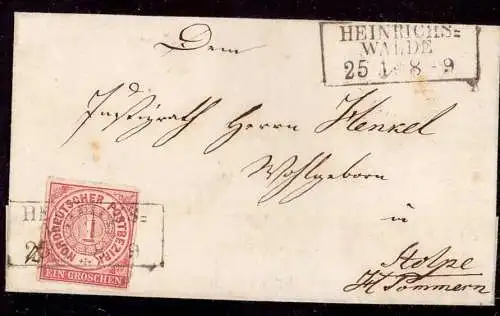 HEINRICHS=
WALDE
25 1 8-9
Dem
Justizrath Herrn Henkel
Wohlgeboren
in
Stolpe
H Pommern
NORDDEUTSCHER POSTBEZIRK
1
EIN GROSCHEN
HE S=
2 9